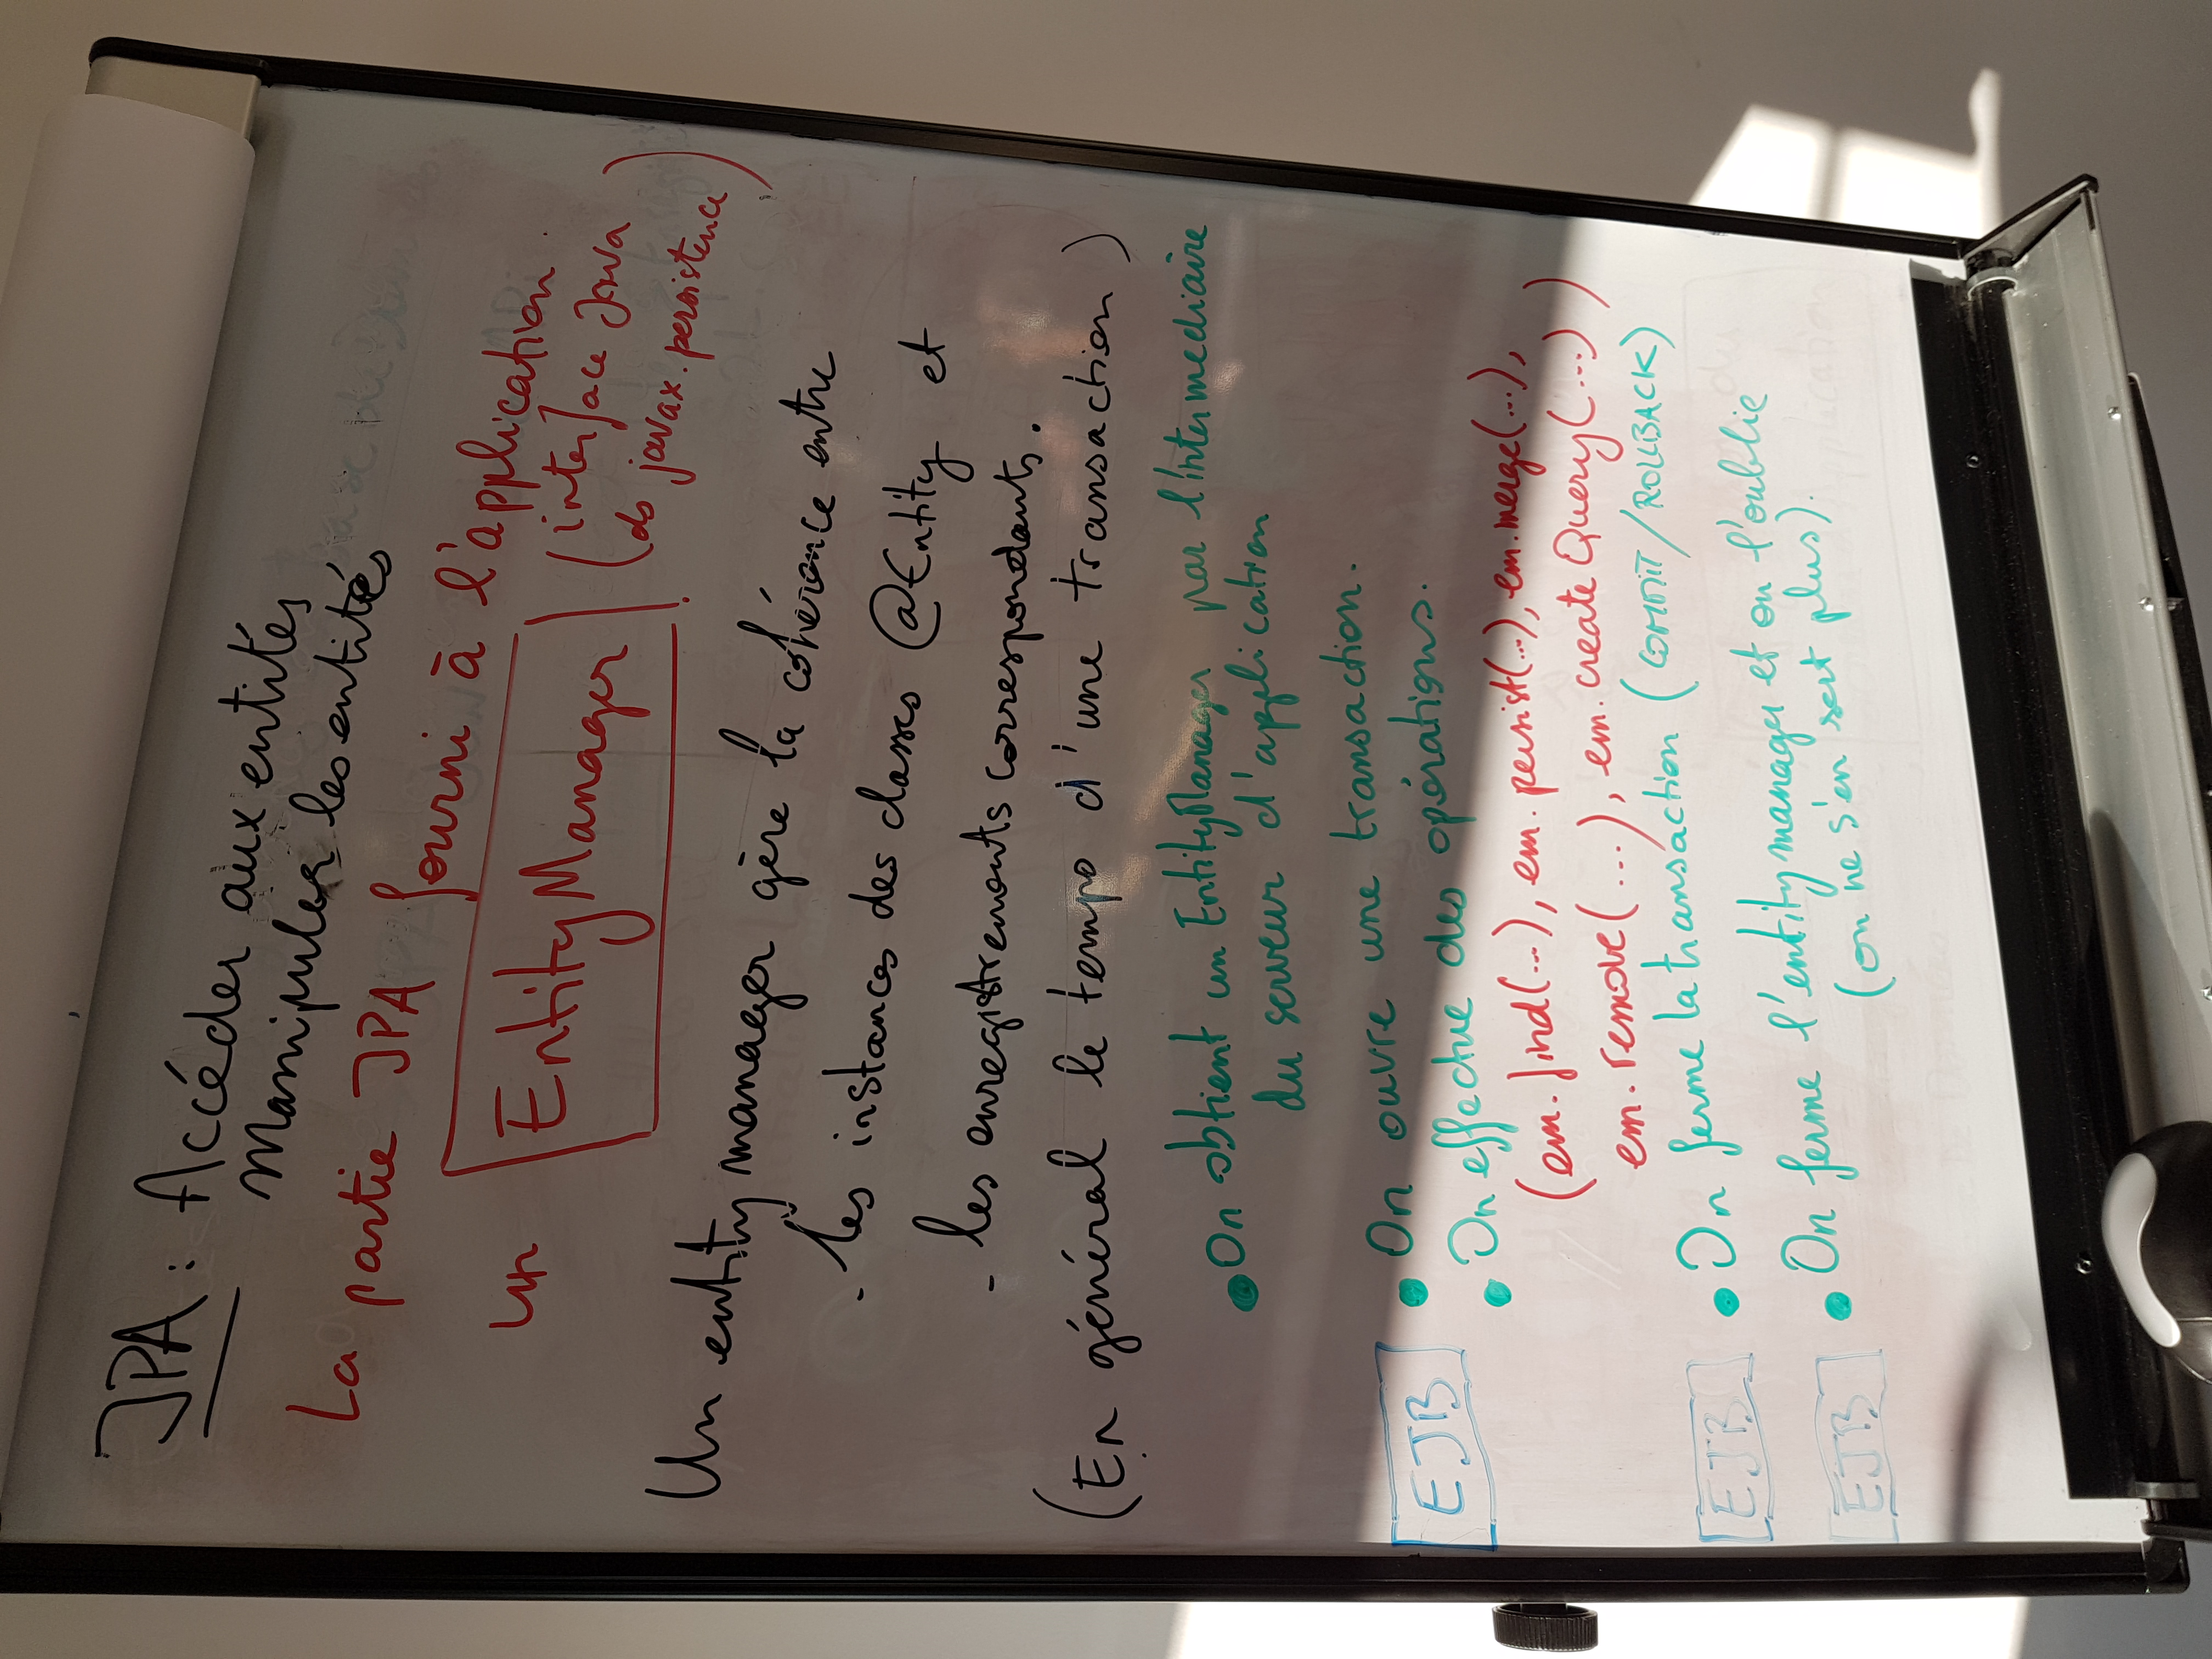 JPA : Accéder aux entités
Manipuler les entités
La partie JPA fourni à l'application
un EntityManager (interface Java
ds javax.persistence)
Un entity manager gère la cohérence entre
- les instances des classes @Entity et
- les enregistrements correspondants.
(En général le temps d'une transaction)
• On obtient un EntityManager par l'intermediaire
du serveur d'application
EJB • On ouvre une transaction.
• On effectue des opérations.
(em.find(...), em.persist(...), em.merge(...),
em.remove(...), em.createQuery(...))
EJB • On ferme la transaction (COMMIT/ROLLBACK)
EJB • On ferme l'entity manager et on l'oublie
(on ne s'en sert plus).